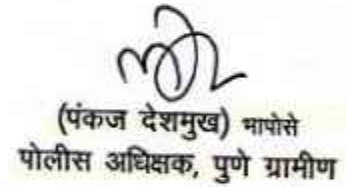 (पंकज देशमुख) भापोसे
पोलीस अधिक्षक, पुणे ग्रामीण